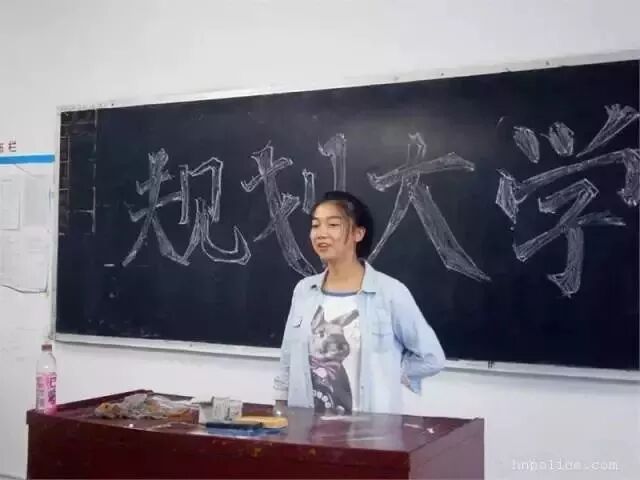 规划大学
栏
hnpolice.com